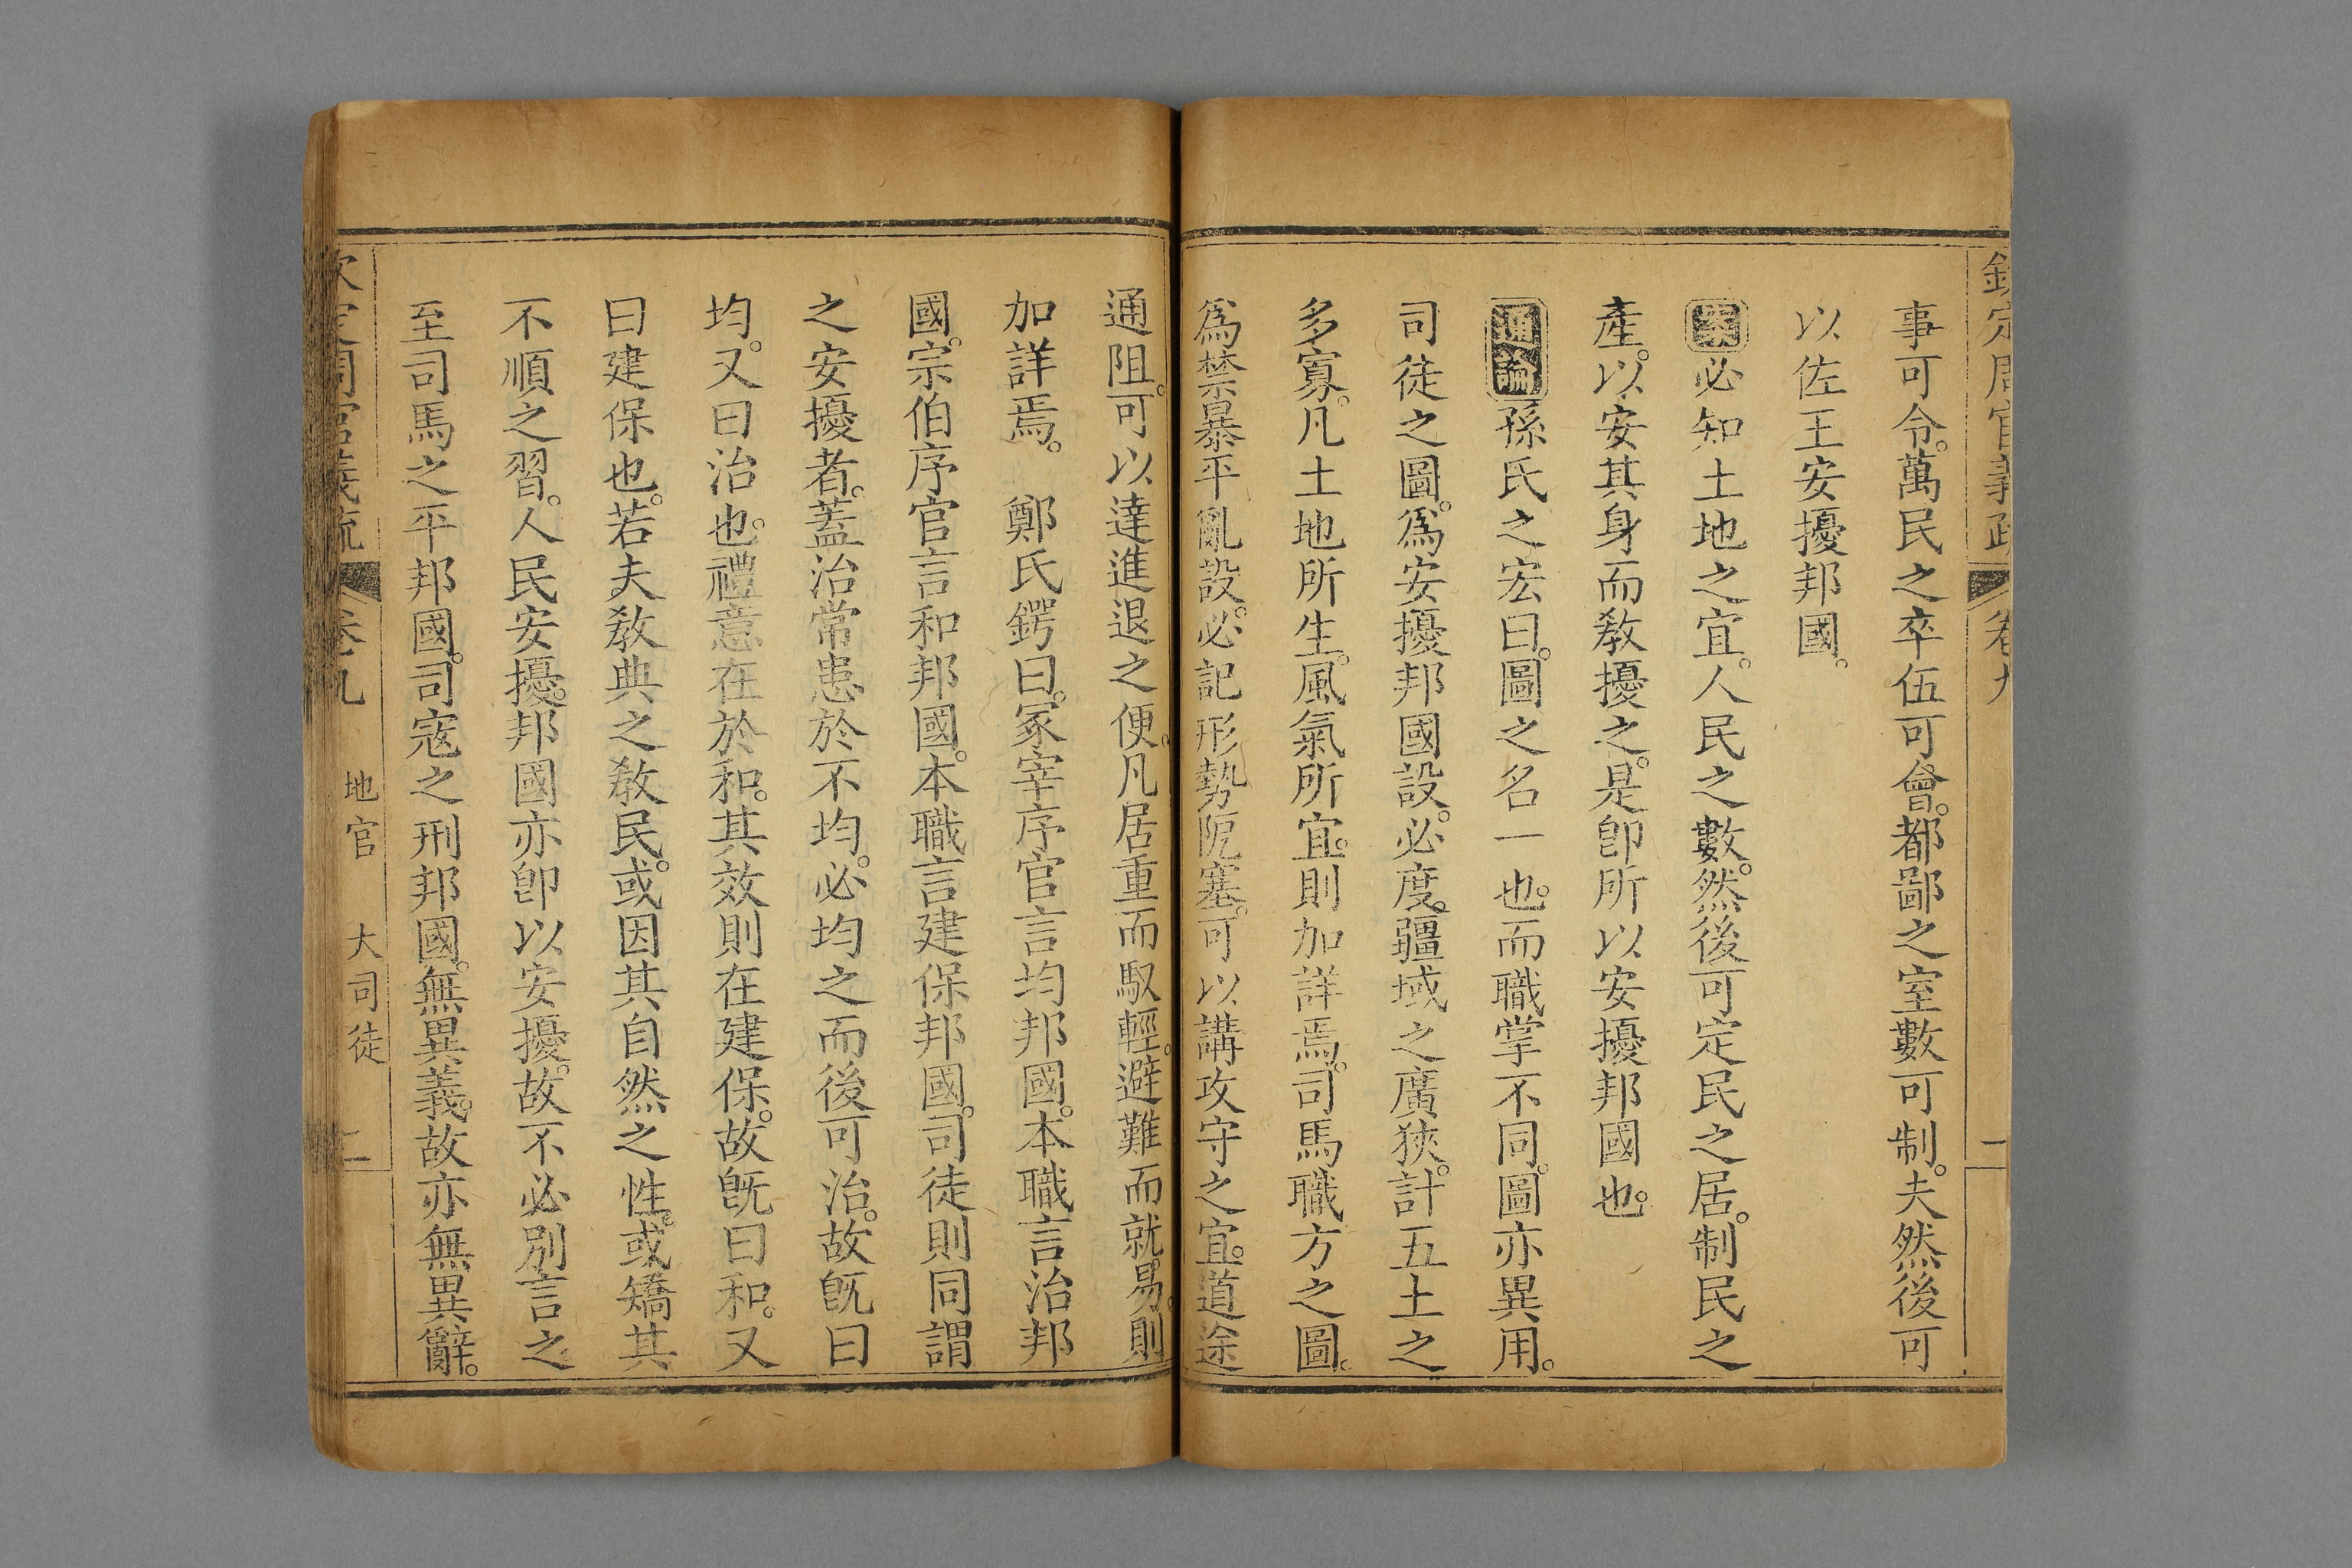 欽定周官義疏 卷九 一
事可令。萬民之卒伍可會。都鄙之室數可制。夫然後可
以佐王安擾邦國。
案必知土地之宜。人民之數。然後可定民之居。制民之
產。以安其身而敎擾之。是卽所以安擾邦國也。
通論孫氏之宏曰。圖之名一也。而職掌不同。圖亦異用。
司徒之圖。爲安擾邦國設。必度疆域之廣狹。計五土之
多寡。凡土地所生。風氣所宜。則加詳焉。司馬職方之圖。
爲禁暴平亂設。必記形勢阨塞。可以講攻守之宜。道途
通阻。可以達進退之便。凡居重而馭輕。避難而就易。則
加詳焉。 鄭氏鍔曰。冢宰序官言均邦國。本職言治邦
國。宗伯序官言和邦國。本職言建保邦國。司徒則同謂
之安擾者。蓋治常患於不均。必均之而後可治。故旣曰
均。又曰治也。禮意在於和。其效則在建保。故旣曰和。又
曰建保也。若夫敎典之敎民。或因其自然之性。或矯其
不順之習。人民安擾。邦國亦卽以安擾。故不必別言之
至司馬之平邦國。司寇之刑邦國。無異義。故亦無異辭。
欽定周官義疏 卷九 地官 大司徒 二